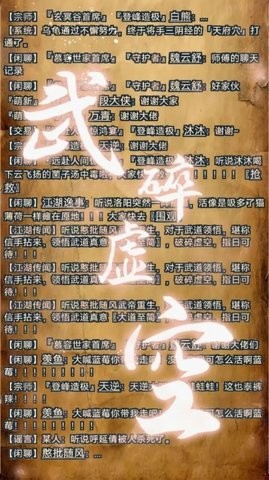 【宗师】『玄冥谷首席』『登峰造极』白熊：...
【系统】乌龟通过不懈努力，终于将手三阴经的「天府穴」打通了。
【闲聊】『慕容世家首席』『守护者』魏云舒：师傅的聊天记录
【闲聊】『慕容世家首席』『守护者』魏云舒：好家伙
『萌新』 段大侠：谢谢大家
『萌 万青：谢谢大佬
【交易 人：惊鸿宴』『登峰造极』沐沐：谢谢~
【宗师】 天逆：谢谢大佬
【闲聊】 远赴人间 『登峰造极』沐沐：听说沐沐喝下云飞扬的黑子汤中毒啦 大家快去 ！！！！！！〖抢救〗
【闲聊】江湖逸事：听说洛阳突然 ，活像是吸多了猫薄荷一样瘫在原地！！！大家快去〖围观〗
【江湖传闻】听说憨批随风 重生，对于武道领悟，堪称信手拈来，领悟武道真意 ，破碎虚空，指日可待！！！
【江湖传闻】听说憨批随风武帝重生，对于武道领悟，堪称信手拈来，领悟武道真意〖大道至简〗，破碎虚空，指日可待！！！
【闲聊】『慕容世家首席』 云舒：恭喜大佬
【闲聊】羡鱼：大喊蓝莓你带我走 可怎么活啊蓝莓！！！！！！！！
【宗师】『登峰造极』天逆： 蛙蛙！这也泰裤辣！！！
【闲聊】羡鱼：大喊蓝莓你带我走吧 可怎么活啊蓝莓！！！！！！！！
【谣言】某人：听说呼延情被人杀死了。
【闲聊】憨批随风：...
武碎虚空